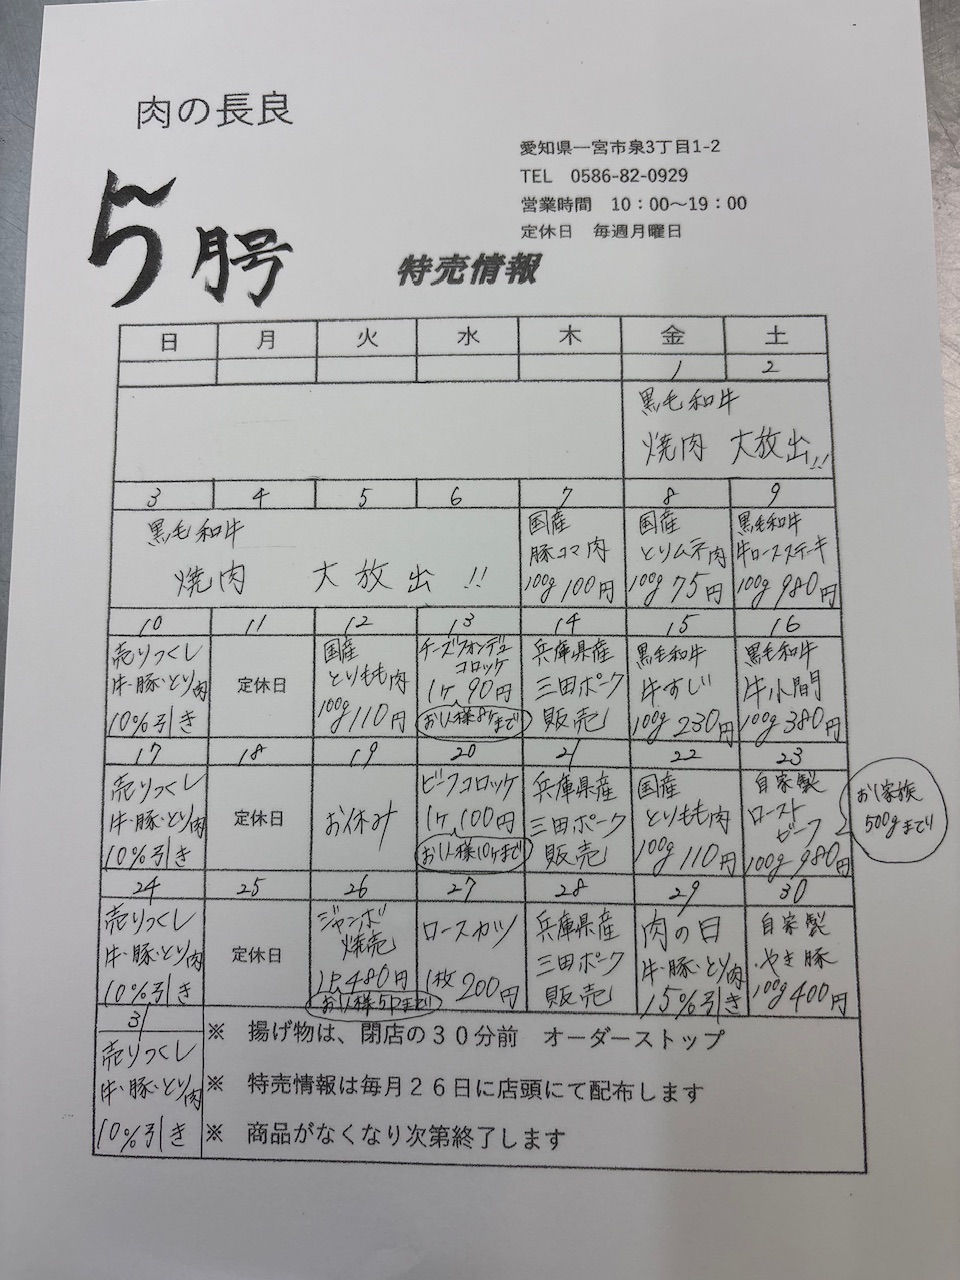 肉の長良
愛知県一宮市泉3丁目1-2
TEL 0586-82-0929
営業時間 10：00～19：00
定休日 毎週月曜日
5月号
特売情報
日 月 火 水 木 金 土
1 2
黒毛和牛
焼肉 大放出!!
3 4 5 6 7 8 9
黒毛和牛
焼肉 大放出!!
国産
豚コマ肉
100g 100円
国産
とりムネ肉
100g 75円
黒毛和牛
牛ロースステーキ
100g 980円
10 11 12 13 14 15 16
売りつくし
牛・豚・とり肉
10%引き
定休日
国産
とりもも肉
100g 110円
チーズフォンデュ
コロッケ
1ヶ 90円
お1人様8ケまで
兵庫県産
三田ポーク
販売
黒毛和牛
牛すじ
100g 230円
黒毛和牛
牛小間
100g 380円
17 18 19 20 21 22 23
売りつくし
牛・豚・とり肉
10%引き
定休日
お休み
ビーフコロッケ
1ヶ 100円
お1人様10ケまで
兵庫県産
三田ポーク
販売
国産
とりもも肉
100g 110円
自家製
ロースト
ビーフ
100g 980円
お1家族
500gまで
24 25 26 27 28 29 30
売りつくし
牛・豚・とり肉
10%引き
定休日
ジャンボ
焼売
1P 480円
お1人様5Pまで
ロースカツ
1枚 200円
兵庫県産
三田ポーク
販売
肉の日
牛・豚・とり肉
15%引き
自家製
やき豚
100g 400円
31
売りつくし
牛・豚・とり肉
10%引き
※ 揚げ物は、閉店の３０分前 オーダーストップ
※ 特売情報は毎月２６日に店頭にて配布します
※ 商品がなくなり次第終了します